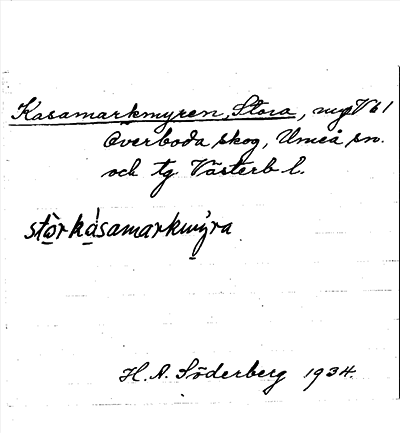 Kasamarkmyren, Stora, myr V 61
Överboda skog, Umeå sn.
och tg Västerb l.
stòrkásamarkmýra
H. A. Söderberg 1934.